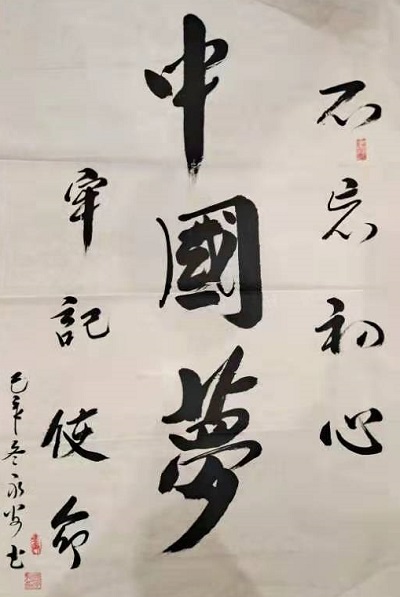 不忘初心
中國夢
牢記使命
冬永安书